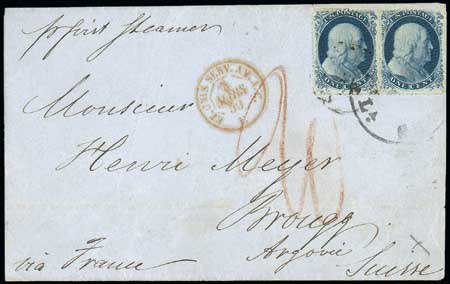 pr first Steamer
U.S. POSTAGE
ONE CENT
U.S. POSTAGE
ONE CENT
Monsieur
Henri Meyer
Brougg
Argovie
via France
Suisse